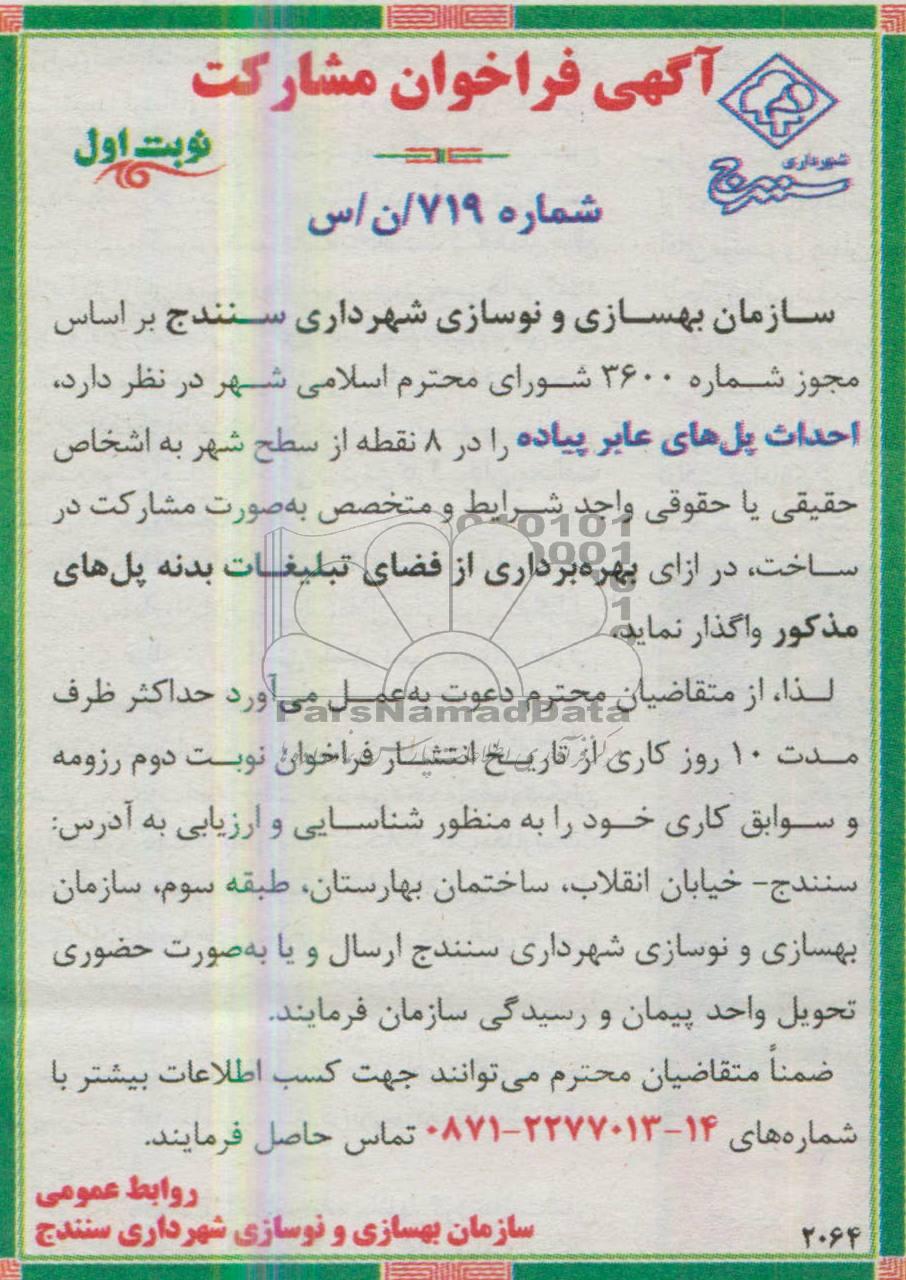 آگهی فراخوان مشارکت
شهرداری
سنندج
نوبت اول
شماره ۷۱۹/ن/س
سازمان بهسازی و نوسازی شهرداری سنندج بر اساس
مجوز شماره ۳۶۰۰ شورای محترم اسلامی شهر در نظر دارد،
احداث پل‌های عابر پیاده را در ۸ نقطه از سطح شهر به اشخاص
حقیقی یا حقوقی واجد شرایط و متخصص به‌صورت مشارکت در
ساخت، در ازای بهره‌برداری از فضای تبلیغات بدنه پل‌های
مذکور واگذار نماید.
لذا، از متقاضیان محترم دعوت به‌عمل می‌آورد حداکثر ظرف
مدت ۱۰ روز کاری از تاریخ انتشار فراخوان نوبت دوم رزومه
و سوابق کاری خود را به منظور شناسایی و ارزیابی به آدرس:
سنندج- خیابان انقلاب، ساختمان بهارستان، طبقه سوم، سازمان
بهسازی و نوسازی شهرداری سنندج ارسال و یا به‌صورت حضوری
تحویل واحد پیمان و رسیدگی سازمان فرمایند.
ضمناً متقاضیان محترم می‌توانند جهت کسب اطلاعات بیشتر با
شماره‌های ۱۴-۲۲۷۷۰۱۳-۰۸۷۱ تماس حاصل فرمایند.
روابط عمومی
سازمان بهسازی و نوسازی شهرداری سنندج
۲۰۶۴
ParsNamadData